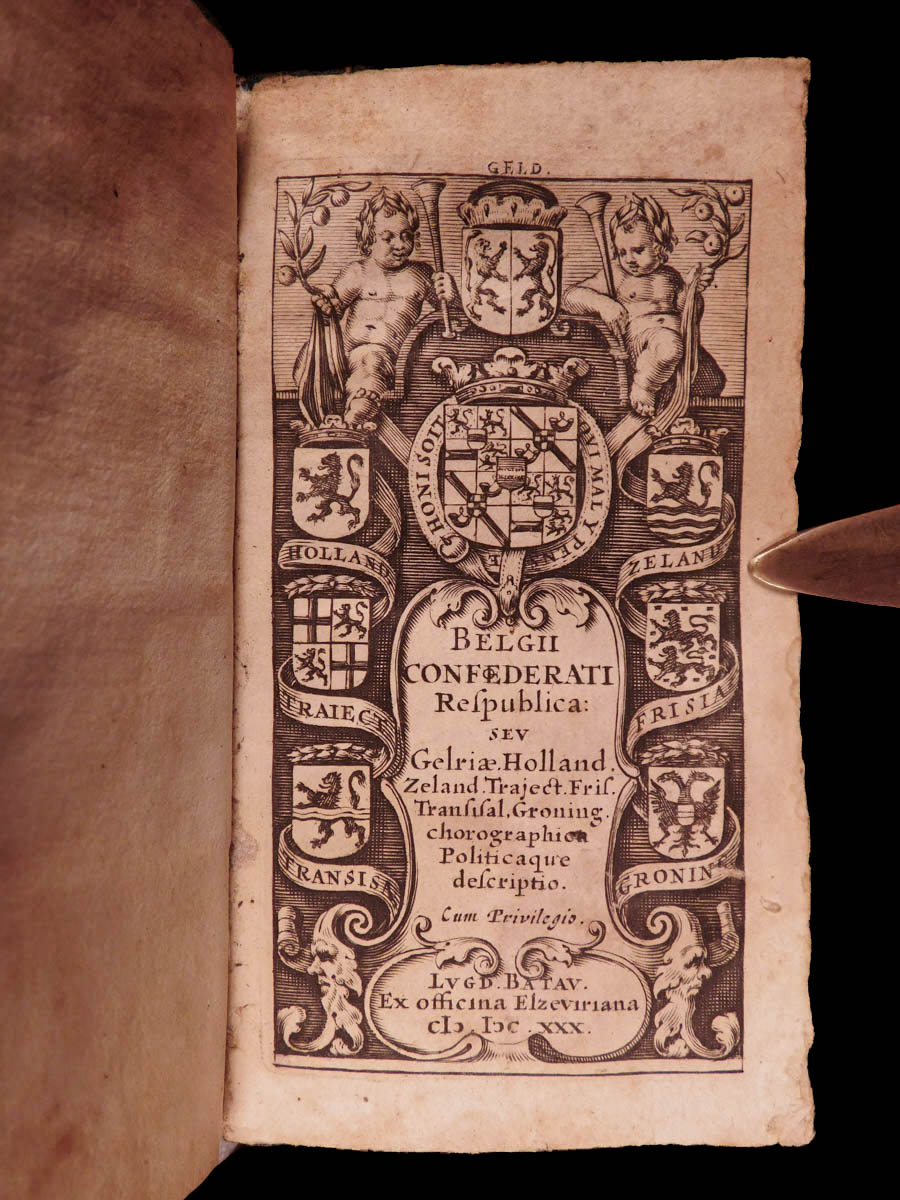 GELD.
HONI SOIT QUI MAL Y PENSE
HOLLAND
ZELAND
TRAIECT
FRISIA
TRANSISA
GRONIN
BELGII
CONFŒDERATI
Reſpublica:
SEV
Gelriæ. Holland.
Zeland. Traject. Friſ.
Tranſiſal. Groning.
chorographica
Politicaque
deſcriptio.
Cum Privilegio.
LVGD. BATAV.
Ex officina Elzeviriana
cIↄ. Iↄc. XXX.